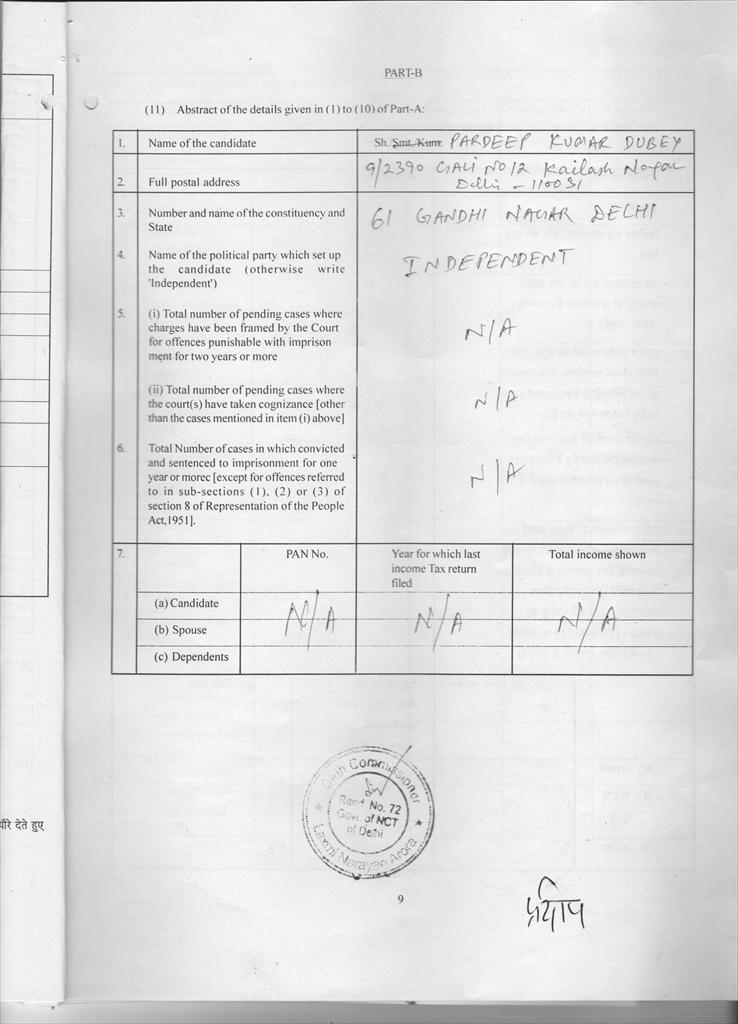 PART-B
(11) Abstract of the details given in (1) to (10) of Part-A:
1. Name of the candidate Sh./Smt./Kum. PARDEEP KUMAR DUBEY
2. Full postal address 9/2390 GALI NO 12 Kailash Nagar
Delhi - 110031
3. Number and name of the constituency and
State
61 GANDHI NAGAR DELHI
4. Name of the political party which set up
the candidate (otherwise write
'Independent')
INDEPENDENT
5. (i) Total number of pending cases where
charges have been framed by the Court
for offences punishable with imprison
ment for two years or more
N/A
(ii) Total number of pending cases where
the court(s) have taken cognizance [other
than the cases mentioned in item (i) above]
N/A
6. Total Number of cases in which convicted
and sentenced to imprisonment for one
year or morec [except for offences referred
to in sub-sections (1), (2) or (3) of
section 8 of Representation of the People
Act,1951].
N/A
7. PAN No. Year for which last Total income shown
income Tax return
filed
(a) Candidate
(b) Spouse
N/A N/A N/A
(c) Dependents
Oath Commissioner
Read No. 72
Govt. of NCT
of Delhi
Laxmi Narayan Arora
9
प्रदीप
ौरे देते हुए